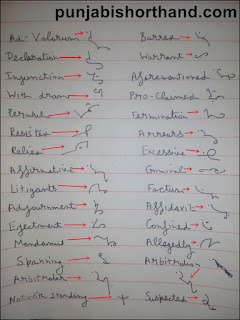 punjabishorthand.com
Ad-Valorum Barred
Declaration Warrant
Injunction Aforementioned
With drawn Pro-Claimed
Peruse Termination
Resisted Arrears
Relied Excessive
Affirmative Criminal
Litigants Factum
Adjournment Affidavit
Ejectment Confined
Mandamus Allegedly
Spanning Arbitration
Arbitrator
Notwith standing Suspected